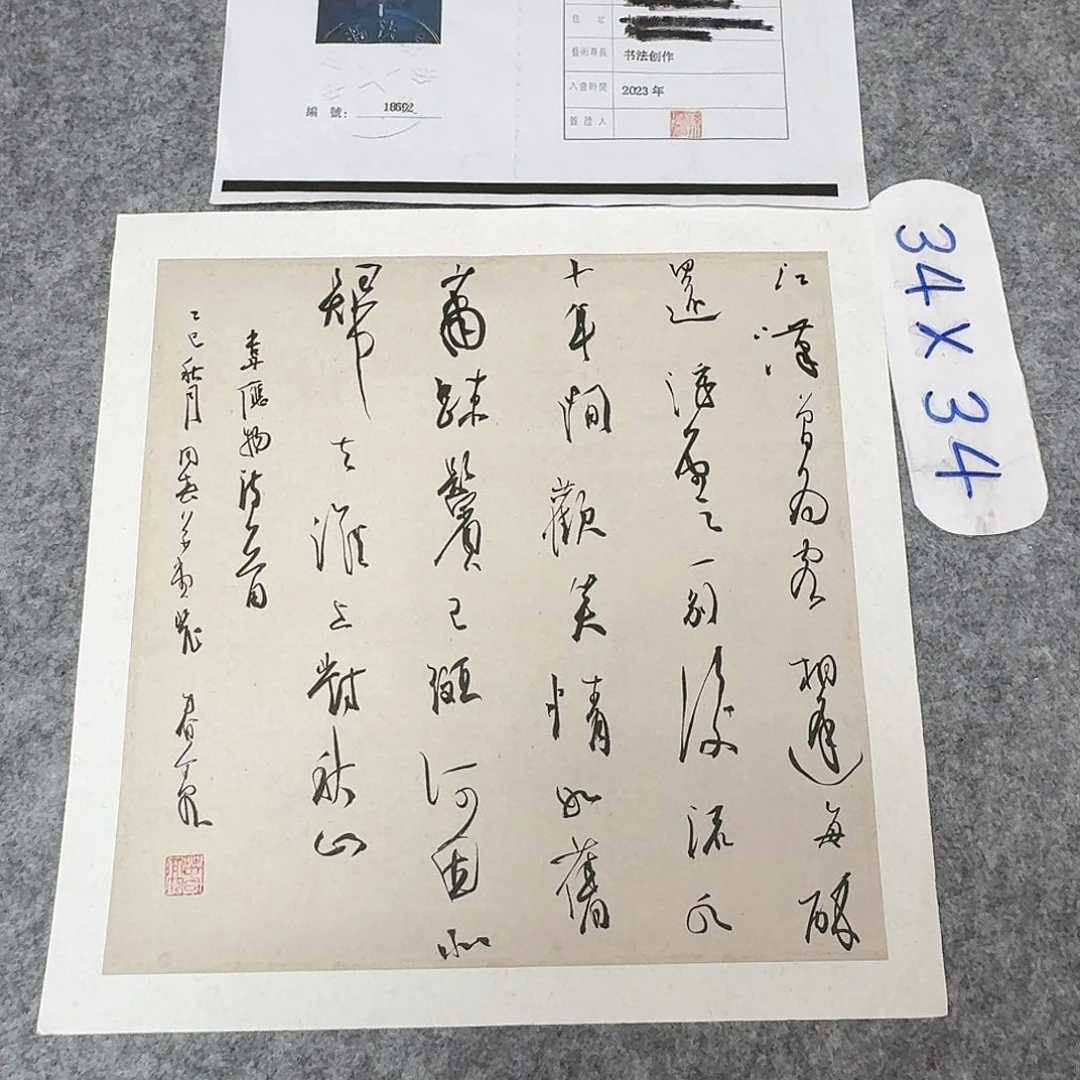 住 址
藝術專長 书法创作
入會時間 2023 年
簽 證 人
編 號: 18692
34 X 34
江漢曾為客相逢每醉
還浮雲一別後流水
十年間歡笑情如舊
蕭疎鬢已斑何因北
歸去淮上對秋山
韋應物詩一首
乙巳秋月